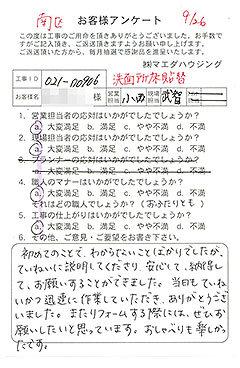 南区 お客様アンケート 9/26
この度は工事のご用命を頂きありがとうございました。お手数で
すがご記入頂き、ご返送頂きますようお願い申し上げます。
ご返送頂いた方から、毎月抽選で感謝品を進呈いたします。
㈱マエダハウジング
工事ID 021-00906 洗面所床貼替
お客様名 様 営業担当 小田 現場担当 武智
1. 営業担当者の応対はいかがでしたでしょうか?
a. 大変満足 b. 満足 c. やや不満 d. 不満
2. 現場担当者の応対はいかがでしたでしょうか?
a. 大変満足 b. 満足 c. やや不満 d. 不満
3. プランナーの応対はいかがでしたでしょうか?
a. 大変満足 b. 満足 c. やや不満 d. 不満
4. 職人のマナーはいかがでしたでしょうか?
a. 大変満足 b. 満足 c. やや不満 d. 不満
それはどの職人でしょうか?(おふたりとも)
5. 工事の仕上がりはいかがでしたでしょうか?
a. 大変満足 b. 満足 c. やや不満 d. 不満
6. その他、ご意見・ご要望をお書き下さい。
初めてのことで、わからないことばかりでしたが、
ていねいに説明してくださり、安心して、納得し
て、お願いすることができました。当日もていね
いかつ迅速に作業していただき、ありがとうござ
いました。またリフォームする際には、ぜひお
願いしたいと思っています。おしゃべりも楽しかっ
たです。